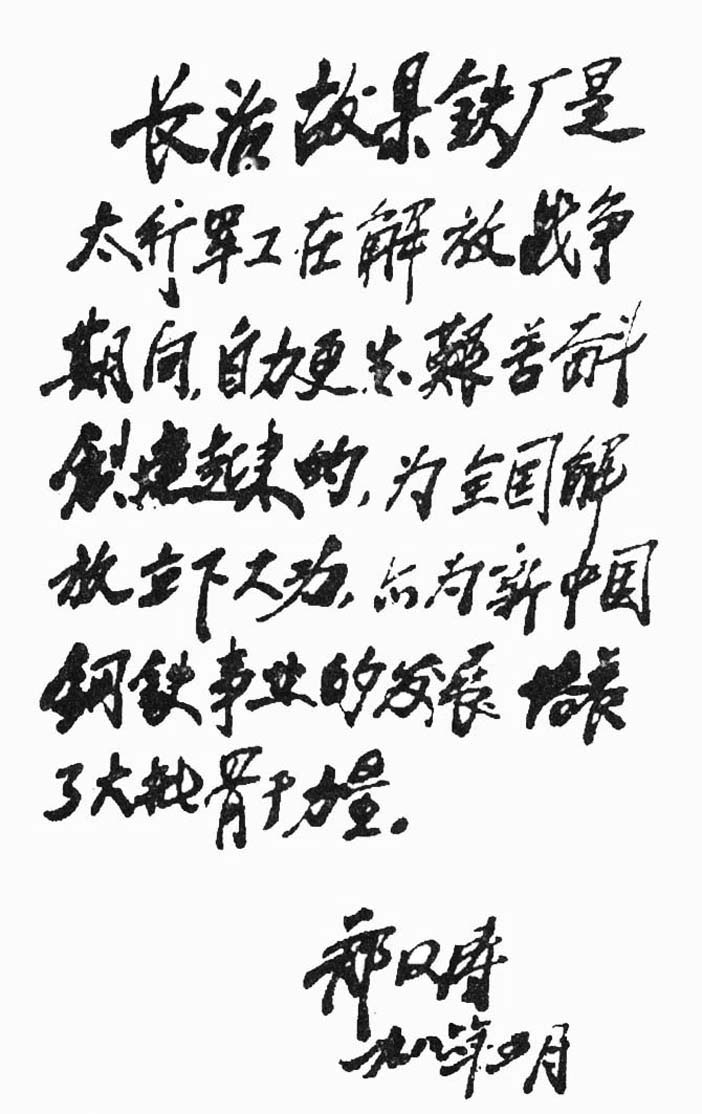 长治故県铁厂是
太行军工在解放战争
期间,自力更生艱苦奋斗
创建起来的,为全国解
放立下大功,亦为新中国
钢铁事业的发展培养
了大批骨干力量。
郝汉涛
一九八六年五月